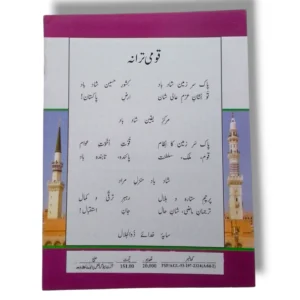 قومی ترانہ
پاک سر زمین شاد باد کشور حسین شاد باد
تو نشان عزم عالی شان ارض پاکستان!
مرکز یقین شاد باد
پاک سر زمین کا نظام قوت اخوت عوام
قوم، ملک، سلطنت پائندہ تابندہ باد
شاد باد منزل مراد
پرچم ستارہ و ہلال رہبر ترقی و کمال
ترجمان ماضی، شان حال جان استقبال!
سایۂ خدائے ذوالجلال
20,000
151.00